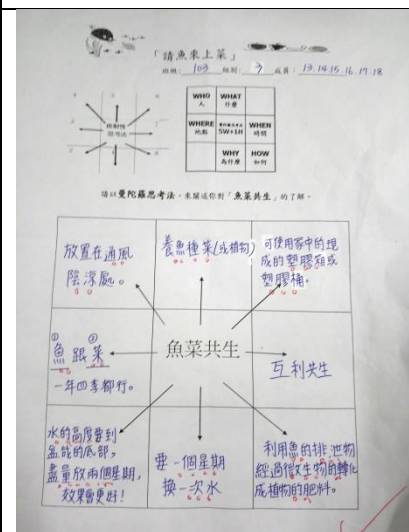 「請魚來上菜」
班級：103 組別：3 成員：13.14.15.16.17.18
放射性
思考法
WHO
人
WHAT
什麼
WHERE
地點
5W+1H
WHEN
時間
WHY
為什麼
HOW
如何
請以曼陀羅思考法，來闡述你對「魚菜共生」的了解。
放置在通風
陰涼處。
養魚種菜(或植物)
可使用家中的現
成的塑膠箱或
塑膠桶。
① ②
魚跟菜
一年四季都行。
魚菜共生
互利共生
水的高度要到
盆能的底部，
盡量放兩個星期，
效果會更好！
要一個星期
換一次水
利用魚的排泄物
經過微生物的轉化
成植物的肥料。